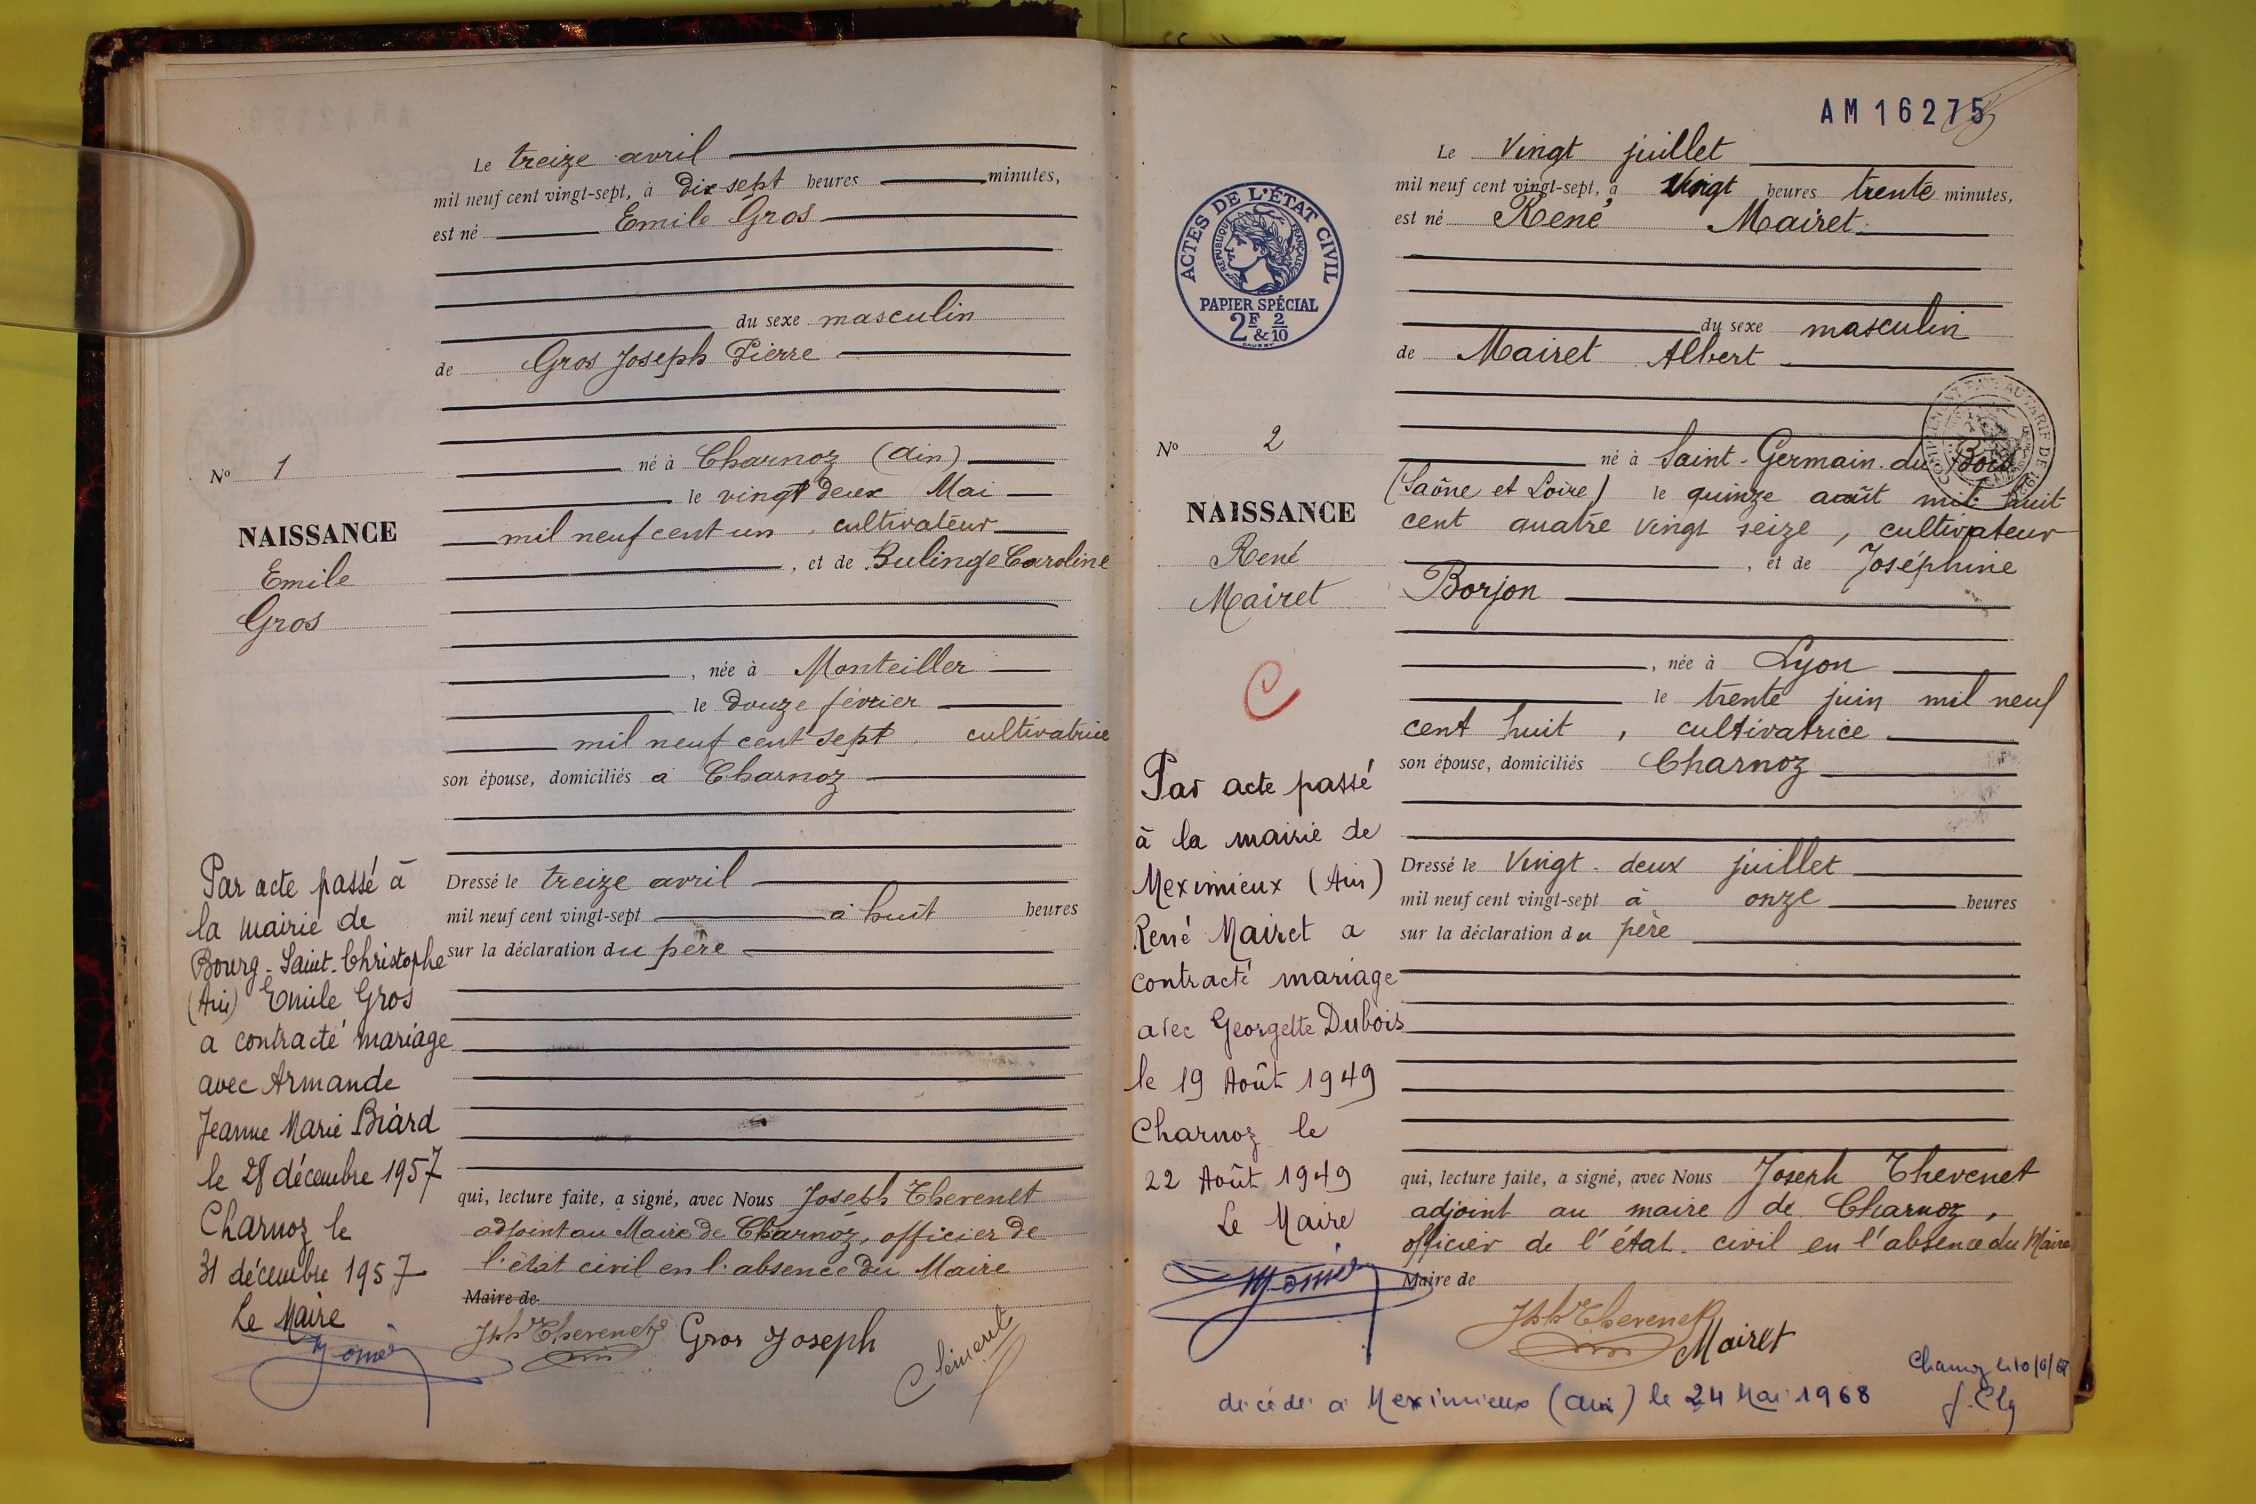 Le treize avril
mil neuf cent vingt-sept, à dix-sept heures minutes,
est né Emile Gros
du sexe masculin
de Gros Joseph Pierre
né à Charnoz (Ain)
le vingt deux Mai
mil neuf cent un, cultivateur
, et de Bulinge Caroline
, née à Monteiller
le douze février
mil neuf cent sept, cultivatrice
son épouse, domiciliés à Charnoz
Dressé le treize avril
mil neuf cent vingt-sept à huit heures
sur la déclaration du père
qui, lecture faite, a signé, avec Nous Joseph Thevenet
adjoint au Maire de Charnoz, officier de
l'état civil en l'absence du Maire
Maire de
Jph Thevenet Gros Joseph
Clément
No 1
NAISSANCE
Emile
Gros
Par acte passé à
la mairie de
Bourg-Saint-Christophe
(Ain) Emile Gros
a contracté mariage
avec Armande
Jeanne Marie Biard
le 28 décembre 1957
Charnoz le
31 décembre 1957
Le Maire
AM 16275
ACTES DE L'ÉTAT CIVIL
RÉPUBLIQUE FRANÇAISE
PAPIER SPÉCIAL
2F & 2/10
No 2
NAISSANCE
René
Mairet
C
Par acte passé
à la mairie de
Meximieux (Ain)
René Mairet a
contracté mariage
avec Georgette Dubois
le 19 Août 1949
Charnoz le
22 Août 1949
Le Maire
Le Vingt juillet
mil neuf cent vingt-sept, à vingt heures trente minutes,
est né René Mairet
du sexe masculin
de Mairet Albert
né à Saint-Germain-du-Bois
(Saône et Loire) le quinze août mil huit
cent quatre vingt seize, cultivateur
, et de Joséphine
Borjon
, née à Lyon
le trente juin mil neuf
cent huit, cultivatrice
son épouse, domiciliés Charnoz
Dressé le Vingt-deux juillet
mil neuf cent vingt-sept à onze heures
sur la déclaration du père
qui, lecture faite, a signé, avec Nous Joseph Thevenet
adjoint au maire de Charnoz,
officier de l'état civil en l'absence du Maire
Maire de
Jph Thevenet
Mairet
décédé à Meximieux (Ain) le 24 Mai 1968